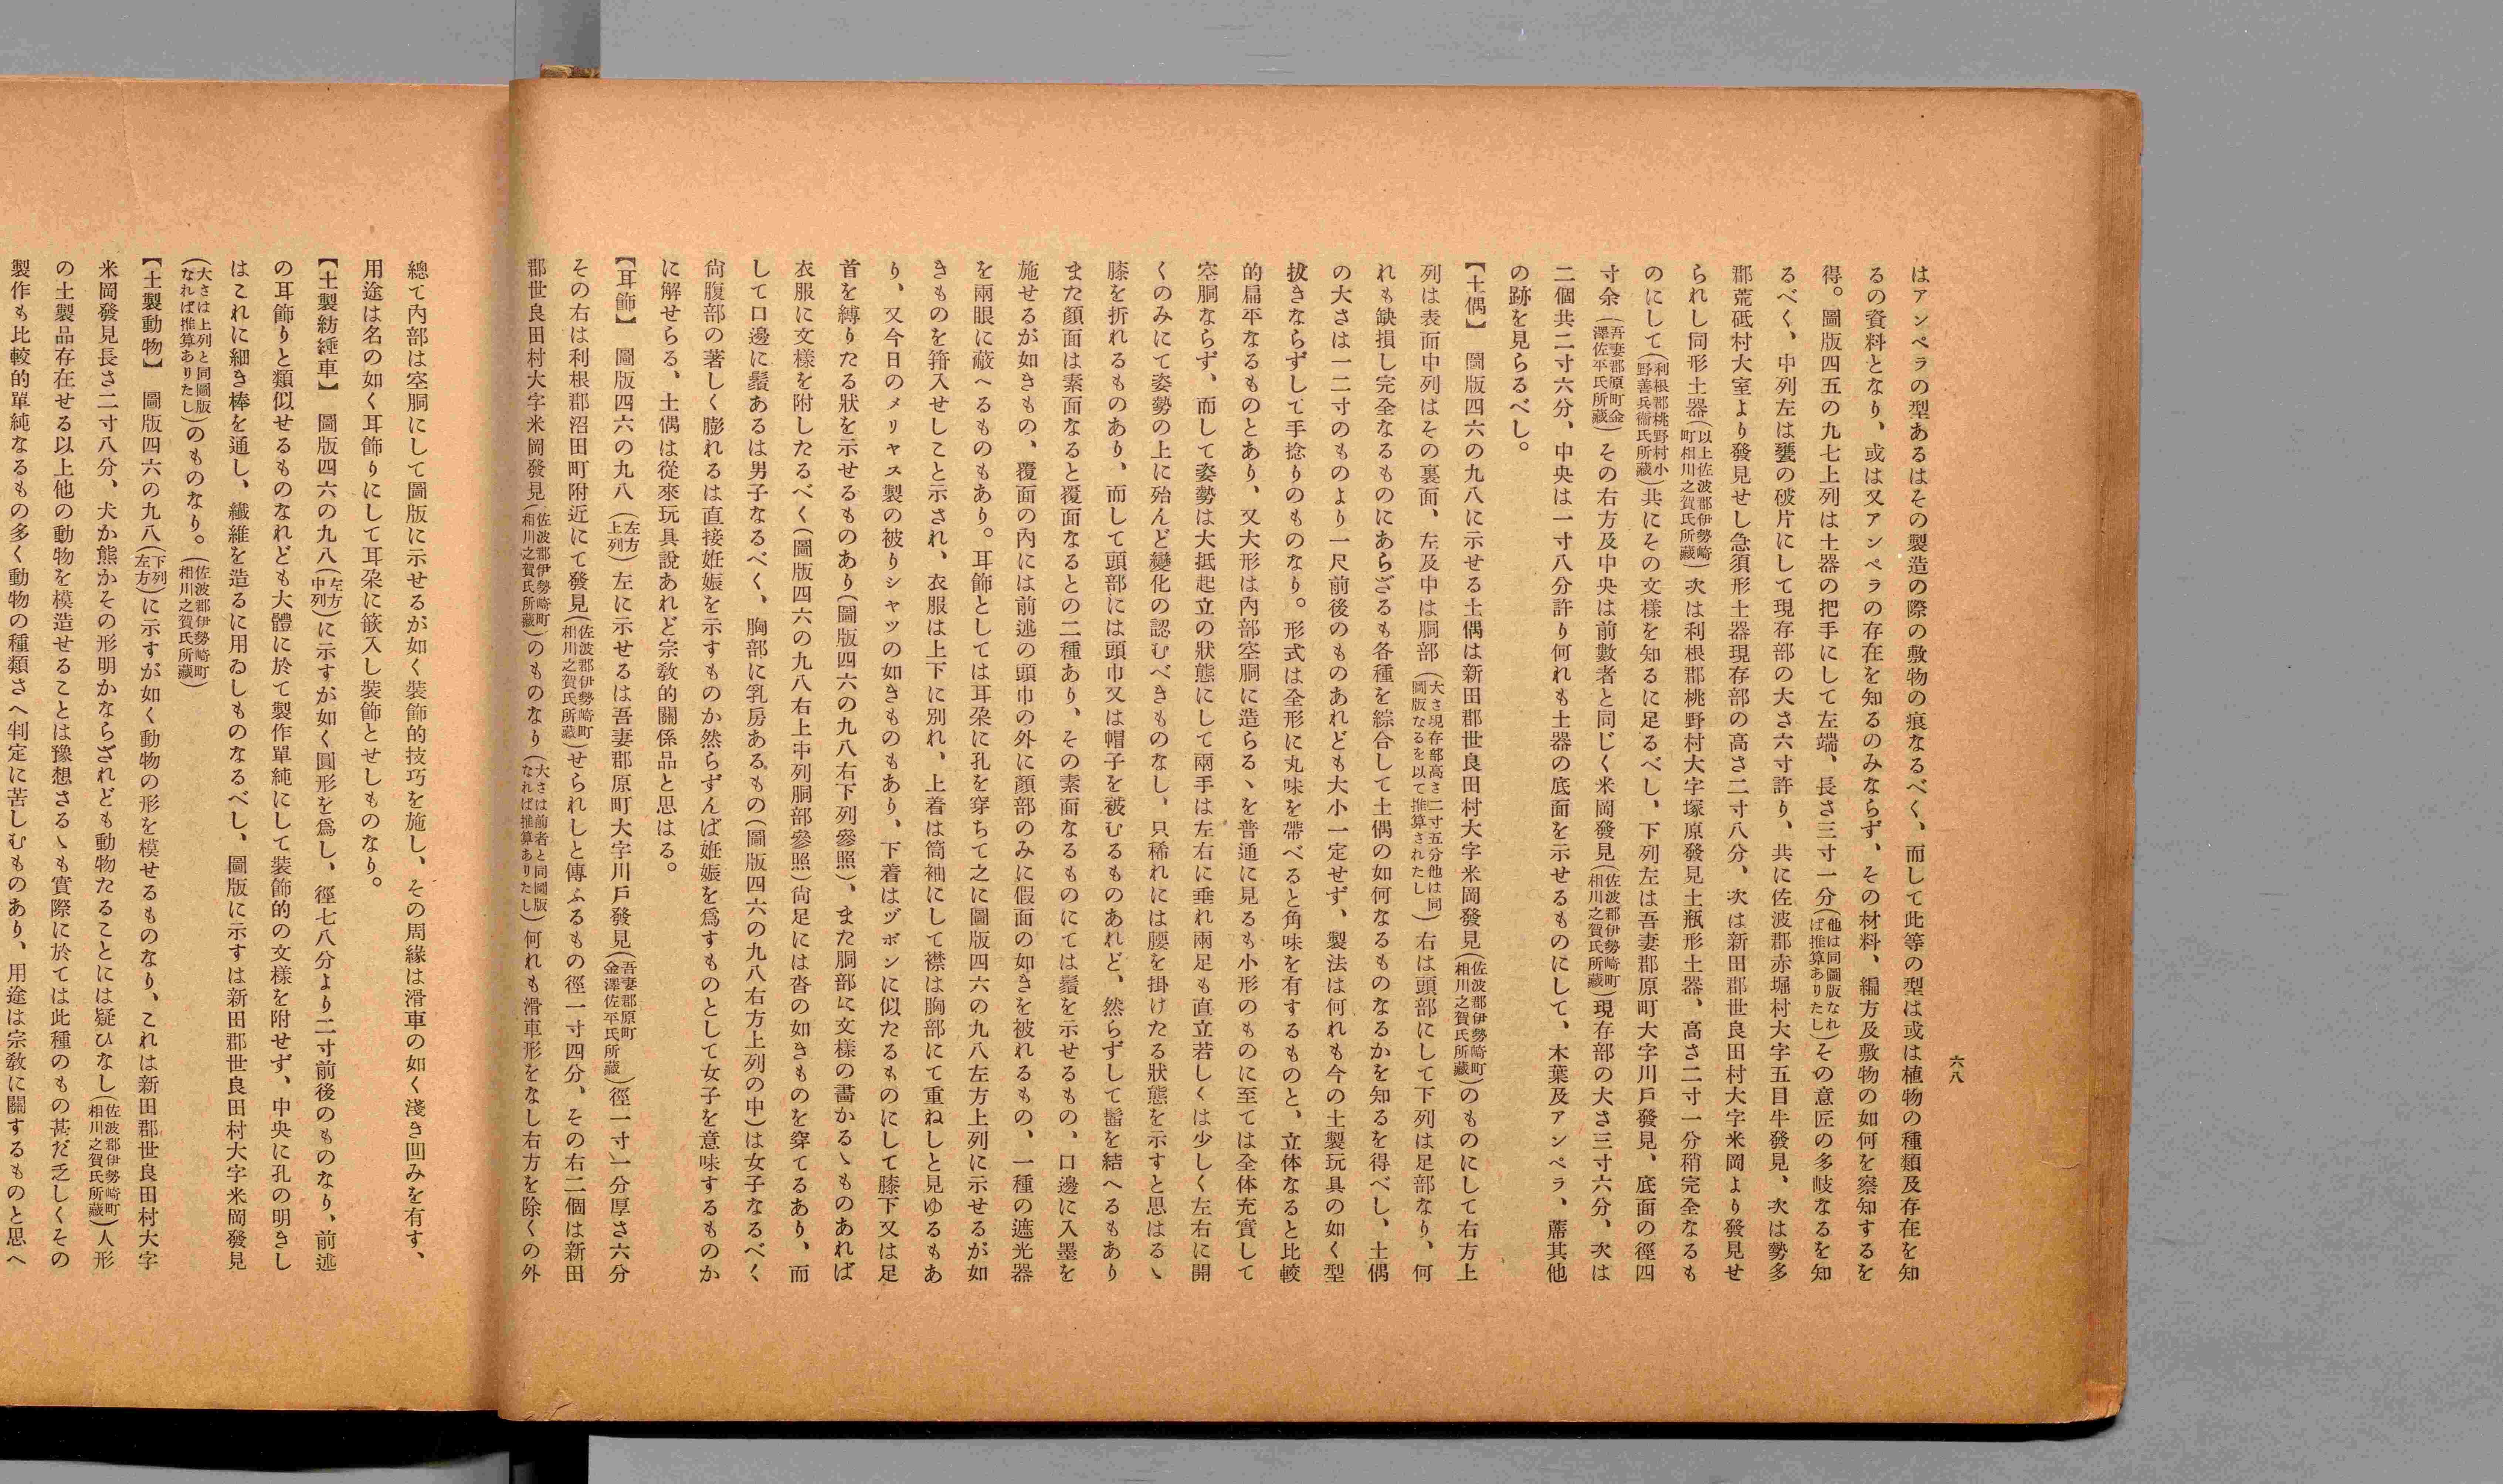 六八
はアンペラの型あるはその製造の際の敷物の痕なるべく、而して此等の型は或は植物の種類及存在を知
るの資料となり、或は又アンペラの存在を知るのみならず、その材料、編方及敷物の如何を察知するを
得。圖版四五の九七上列は土器の把手にして左端、長さ三寸一分(他は同圖版なれば推算ありたし)その意匠の多岐なるを知
るべく、中列左は甕の破片にして現存部の大さ六寸許り、共に佐波郡赤堀村大字五目牛發見、次は勢多
郡荒砥村大室より發見せし急須形土器現存部の高さ二寸八分、次は新田郡世良田村大字米岡より發見せ
られし同形土器(以上佐波郡伊勢崎町相川之賀氏所藏)次は利根郡桃野村大字塚原發見土瓶形土器、高さ二寸一分稍完全なるも
のにして(利根郡桃野村小野善兵衞氏所藏)共にその文樣を知るに足るべし、下列左は吾妻郡原町大字川戸發見、底面の徑四
寸余(吾妻郡原町金澤佐平氏所藏)その右方及中央は前數者と同じく米岡發見(佐波郡伊勢崎町相川之賀氏所藏)現存部の大さ三寸六分、次は
二個共二寸六分、中央は一寸八分許り何れも土器の底面を示せるものにして、木葉及アンペラ、蓆其他
の跡を見らるべし。
【土偶】　圖版四六の九八に示せる土偶は新田郡世良田村大字米岡發見(佐波郡伊勢崎町相川之賀氏所藏)のものにして右方上
列は表面中列はその裏面、左及中は胴部(大さ現存部高さ二寸五分他は同圖版なるを以て推算されたし)右は頭部にして下列は足部なり、何
れも缺損し完全なるものにあらざるも各種を綜合して土偶の如何なるものなるかを知るを得べし、土偶
の大さは一二寸のものより一尺前後のものあれども大小一定せず、製法は何れも今の土製玩具の如く型
拔きならずして手捻りのものなり。形式は全形に丸味を帶べると角味を有するものと、立体なると比較
的扁平なるものとあり、又大形は内部空胴に造らるゝを普通に見るも小形のものに至ては全体充實して
空胴ならず、而して姿勢は大抵起立の狀態にして兩手は左右に垂れ兩足も直立若しくは少しく左右に開
くのみにて姿勢の上に殆んど變化の認むべきものなし、只稀れには腰を掛けたる狀態を示すと思はるゝ
膝を折れるものあり、而して頭部には頭巾又は帽子を被むるものあれど、然らずして髷を結へるもあり
また顏面は素面なると覆面なるとの二種あり、その素面なるものにては鬚を示せるもの、口邊に入墨を
施せるが如きもの、覆面の内には前述の頭巾の外に顏部のみに假面の如きを被れるもの、一種の遮光器
を兩眼に蔽へるものもあり。耳飾としては耳朶に孔を穿ちて之に圖版四六の九八左方上列に示せるが如
きものを箝入せしこと示され、衣服は上下に別れ、上着は筒袖にして襟は胸部にて重ねしと見ゆるもあ
り、又今日のメリヤス製の被りシャツの如きものもあり、下着はヅボンに似たるものにして膝下又は足
首を縛りたる狀を示せるものあり(圖版四六の九八右下列參照)、また胴部に文樣の畵かるゝものあれば
衣服に文樣を附したるべく(圖版四六の九八右上中列胴部參照)尙足には沓の如きものを穿てるあり、而
して口邊に鬚あるは男子なるべく、胸部に乳房あるもの(圖版四六の九八右方上列の中)は女子なるべく
尙腹部の著しく膨れるは直接姙娠を示すものか然らずんば姙娠を爲すものとして女子を意味するものか
に解せらる、土偶は從來玩具說あれど宗敎的關係品と思はる。
【耳飾】　圖版四六の九八(左方上列)左に示せるは吾妻郡原町大字川戸發見(吾妻郡原町金澤佐平氏所藏)徑一寸一分厚さ六分
その右は利根郡沼田町附近にて發見(佐波郡伊勢崎町相川之賀氏所藏)せられしと傳ふるもの徑一寸四分、その右二個は新田
郡世良田村大字米岡發見(佐波郡伊勢崎町相川之賀氏所藏)のものなり(大さは前者と同圖版なれば推算ありたし)何れも滑車形をなし右方を除くの外
總て内部は空胴にして圖版に示せるが如く裝飾的技巧を施し、その周緣は滑車の如く淺き凹みを有す、
用途は名の如く耳飾りにして耳朶に篏入し裝飾とせしものなり。
【土製紡錘車】　圖版四六の九八(左方中列)に示すが如く圓形を爲し、徑七八分より二寸前後のものなり、前述
の耳飾りと類似せるものなれども大體に於て製作單純にして裝飾的の文樣を附せず、中央に孔の明きし
はこれに細き棒を通し、纖維を造るに用ゐしものなるべし、圖版に示すは新田郡世良田村大字米岡發見
(大さは上列と同圖版なれば推算ありたし)のものなり。(佐波郡伊勢崎町相川之賀氏所藏)
【土製動物】　圖版四六の九八(下列左方)に示すが如く動物の形を模せるものなり、これは新田郡世良田村大字
米岡發見長さ二寸八分、犬か熊かその形明かならざれども動物たることには疑ひなし(佐波郡伊勢崎町相川之賀氏所藏)人形
の土製品存在せる以上他の動物を模造せることは豫想さるゝも實際に於ては此種のもの甚だ乏しくその
製作も比較的單純なるもの多く動物の種類さへ判定に苦しむものあり、用途は宗敎に關するものと思へ